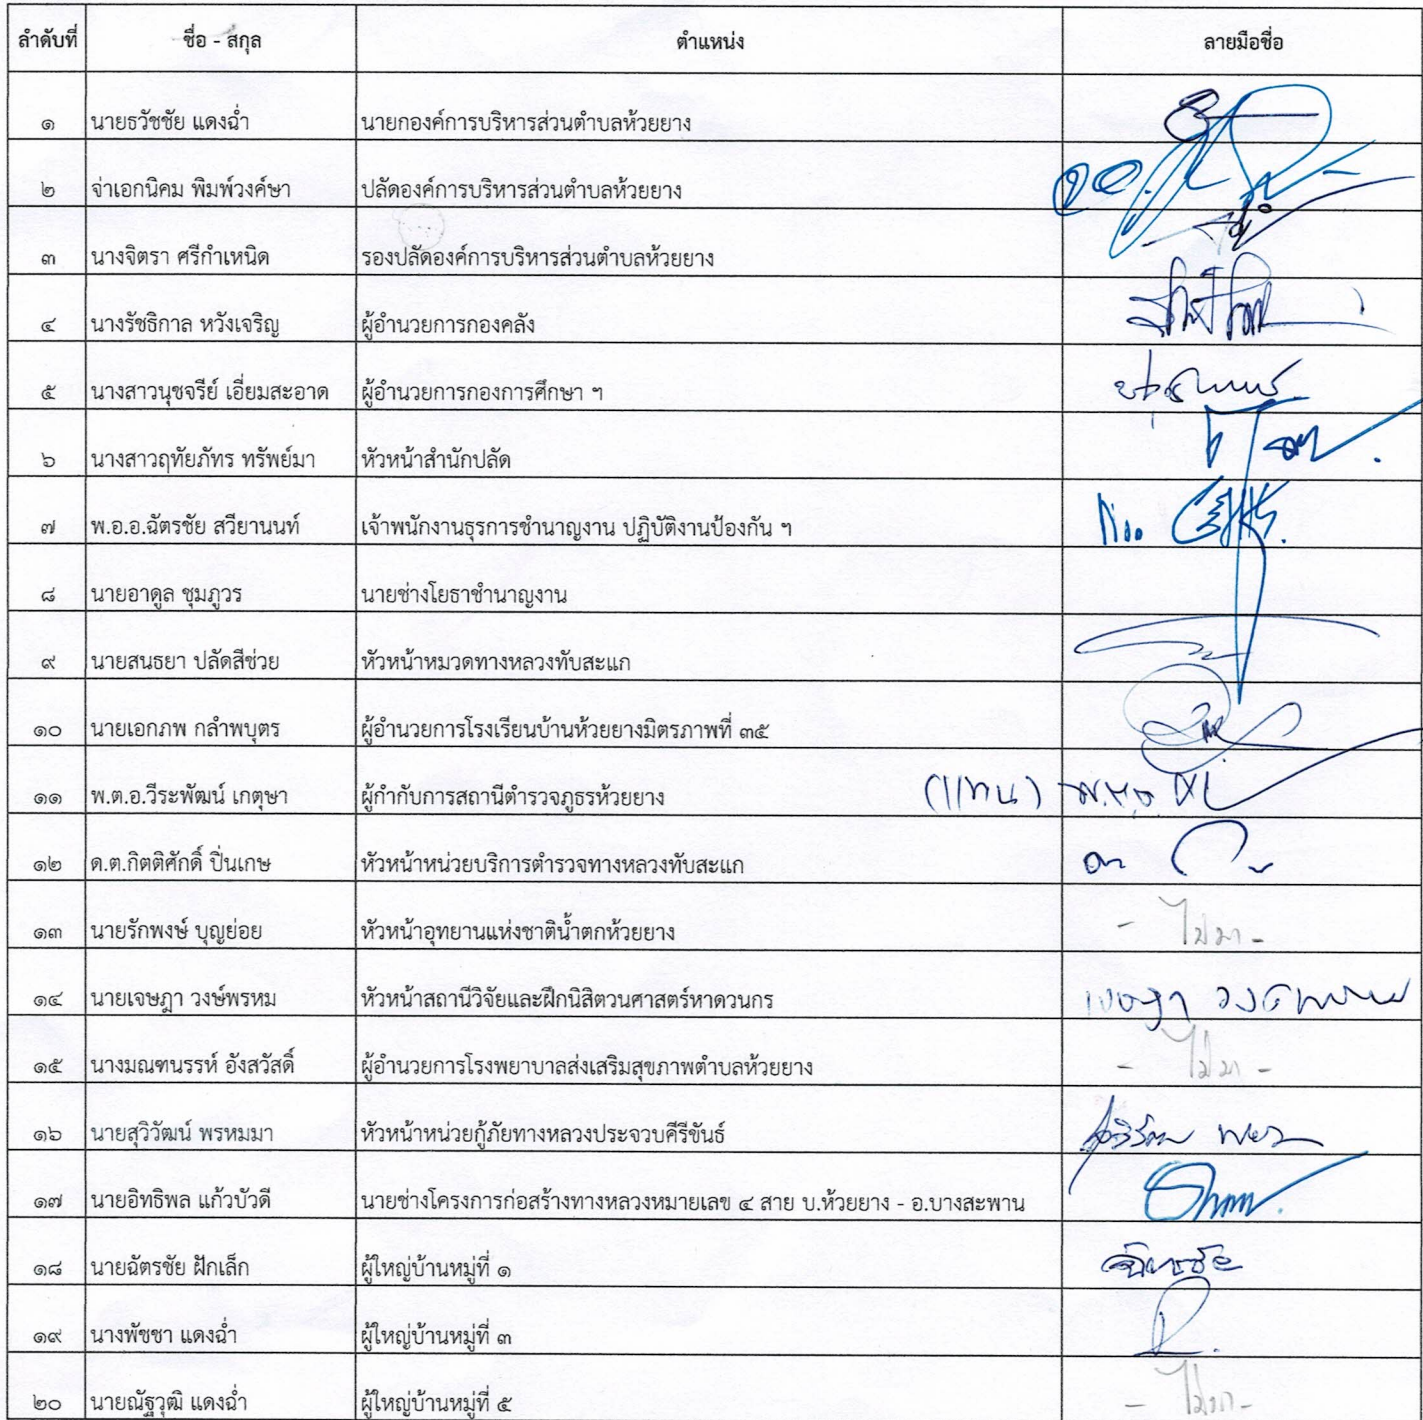 ลำดับที่ ชื่อ - สกุล ตำแหน่ง ลายมือชื่อ
๑ นายธวัชชัย แดงฉ่ำ นายกองค์การบริหารส่วนตำบลห้วยยาง
๒ จ่าเอกนิคม พิมพ์วงค์ษา ปลัดองค์การบริหารส่วนตำบลห้วยยาง
๓ นางจิตรา ศรีกำเหนิด รองปลัดองค์การบริหารส่วนตำบลห้วยยาง
๔ นางรัชธิกาล หวังเจริญ ผู้อำนวยการกองคลัง
๕ นางสาวนุชจรีย์ เอี่ยมสะอาด ผู้อำนวยการกองการศึกษา ฯ
๖ นางสาวฤทัยภัทร ทรัพย์มา หัวหน้าสำนักปลัด
๗ พ.อ.อ.ฉัตรชัย สวียานนท์ เจ้าพนักงานธุรการชำนาญงาน ปฏิบัติงานป้องกัน ฯ
๘ นายอาดูล ชุมภูวร นายช่างโยธาชำนาญงาน
๙ นายสนธยา ปลัดสีช่วย หัวหน้าหมวดทางหลวงทับสะแก
๑๐ นายเอกภพ กลำพบุตร ผู้อำนวยการโรงเรียนบ้านห้วยยางมิตรภาพที่ ๓๕
๑๑ พ.ต.อ.วีระพัฒน์ เกตุษา ผู้กำกับการสถานีตำรวจภูธรห้วยยาง (แทน)
๑๒ ด.ต.กิตติศักดิ์ ปิ่นเกษ หัวหน้าหน่วยบริการตำรวจทางหลวงทับสะแก
๑๓ นายรักพงษ์ บุญย่อย หัวหน้าอุทยานแห่งชาติน้ำตกห้วยยาง - ไม่มา -
๑๔ นายเจษฎา วงษ์พรหม หัวหน้าสถานีวิจัยและฝึกนิสิตวนศาสตร์หาดวนกร
๑๕ นางมณฑนรรห์ อังสวัสดิ์ ผู้อำนวยการโรงพยาบาลส่งเสริมสุขภาพตำบลห้วยยาง - ไม่มา -
๑๖ นายสุวิวัฒน์ พรหมมา หัวหน้าหน่วยกู้ภัยทางหลวงประจวบคีรีขันธ์
๑๗ นายอิทธิพล แก้วบัวดี นายช่างโครงการก่อสร้างทางหลวงหมายเลข ๔ สาย บ.ห้วยยาง - อ.บางสะพาน
๑๘ นายฉัตรชัย ฝักเล็ก ผู้ใหญ่บ้านหมู่ที่ ๑ ฉัตรชัย
๑๙ นางพัชชา แดงฉ่ำ ผู้ใหญ่บ้านหมู่ที่ ๓
๒๐ นายณัฐวุฒิ แดงฉ่ำ ผู้ใหญ่บ้านหมู่ที่ ๕ - ไม่มา -